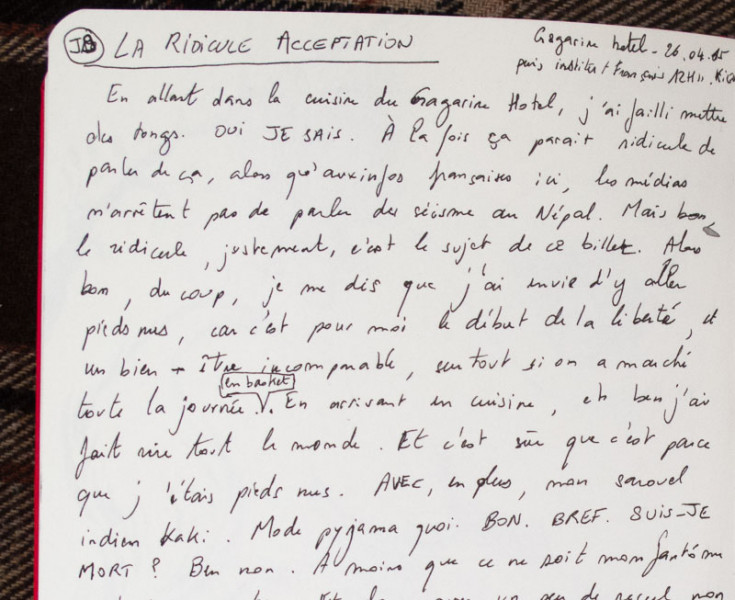 J8 LA RIDICULE ACCEPTATION
Gagarine hotel - 26.04.15
puis institut Français 12H11.
En allant dans la cuisine du Gagarine Hotel, j'ai failli mettre
des tongs. OUI JE SAIS. À la fois ça parait ridicule de
parler de ça, alors qu'aux infos françaises ici, les médias
n'arrêtent pas de parler du séisme au Népal. Mais bon,
le ridicule, justement, c'est le sujet de ce billet. Alors
bon, du coup, je me dis que j'ai envie d'y aller
pieds nus, car c'est pour moi le début de la liberté, et
un bien-être incomparable, surtout si on a marché
en basket
toute la journée. En arrivant en cuisine, eh ben j'ai
fait rire tout le monde. Et c'est sûr que c'est parce
que j'étais pieds nus. AVEC, en plus, mon sarouel
indien kaki. Mode pyjama quoi. BON. BREF. SUIS-JE
MORT ? Ben non. A moins que ce ne soit mon fantôme